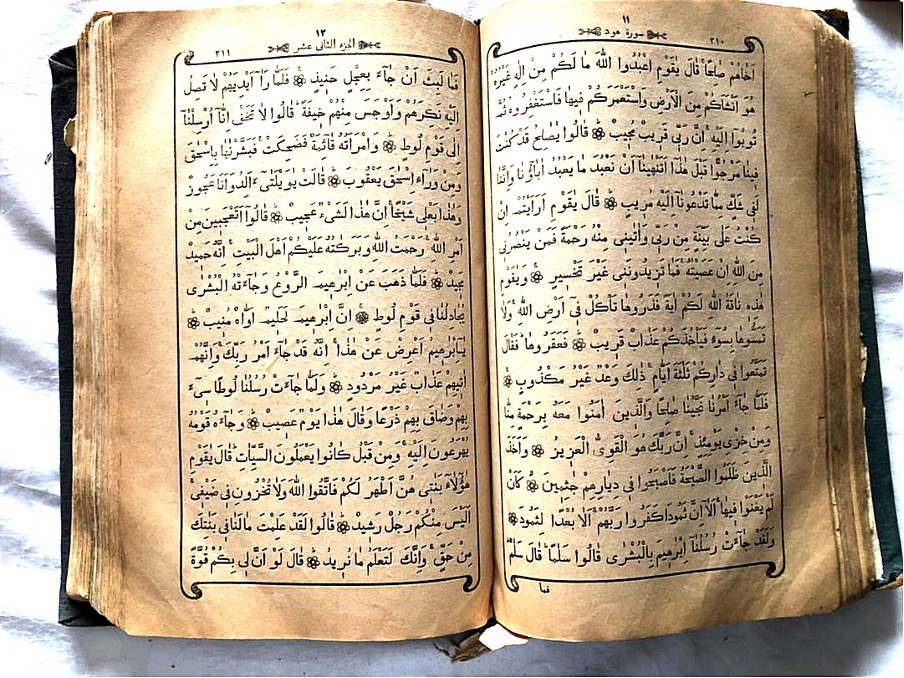 ١١
سورة هود
٢١٠
اَخَاهُمْ صَالِحًا قَالَ يَاقَوْمِ اعْبُدُوا اللّٰهَ مَا لَكُمْ مِنْ اِلٰهٍ غَيْرُهُ
هُوَ اَنْشَاَكُمْ مِنَ الْاَرْضِ وَاسْتَعْمَرَكُمْ فِيهَا فَاسْتَغْفِرُوهُ ثُمَّ
تُوبُوٓا اِلَيْهِ اِنَّ رَبّ۪ى قَر۪يبٌ مُج۪يبٌ ۞ قَالُوا يَاصَالِحُ قَدْ كُنْتَ
ف۪ينَا مَرْجُوًّا قَبْلَ هٰذَٓا اَتَنْهٰينَٓا اَنْ نَعْبُدَ مَا يَعْبُدُ اٰبَٓاؤُ۬نَا وَاِنَّنَا
لَف۪ى شَكٍّ مِمَّا تَدْعُونَٓا اِلَيْهِ مُر۪يبٍ ۞ قَالَ يَاقَوْمِ اَرَاَيْتُمْ اِنْ
كُنْتُ عَلٰى بَيِّنَةٍ مِنْ رَبّ۪ى وَاٰتٰين۪ى مِنْهُ رَحْمَةً فَمَنْ يَنْصُرُن۪ى
مِنَ اللّٰهِ اِنْ عَصَيْتُهُ فَمَا تَز۪يدُونَن۪ى غَيْرَ تَخْس۪يرٍ ۞ وَيَاقَوْمِ
هٰذِه۪ نَاقَةُ اللّٰهِ لَكُمْ اٰيَةً فَذَرُوهَا تَاْكُلْ ف۪ٓى اَرْضِ اللّٰهِ وَلَا
تَمَسُّوهَا بِسُٓوءٍ فَيَاْخُذَكُمْ عَذَابٌ قَر۪يبٌ ۞ فَعَقَرُوهَا فَقَالَ
تَمَتَّعُوا ف۪ى دَارِكُمْ ثَلٰثَةَ اَيَّامٍ ذٰلِكَ وَعْدٌ غَيْرُ مَكْذُوبٍ ۞
فَلَمَّا جَٓاءَ اَمْرُنَا نَجَّيْنَا صَالِحًا وَالَّذ۪ينَ اٰمَنُوا مَعَهُ بِرَحْمَةٍ مِنَّا
وَمِنْ خِزْىِ يَوْمِئِذٍ اِنَّ رَبَّكَ هُوَ الْقَوِىُّ الْعَز۪يزُ ۞ وَاَخَذَ
الَّذ۪ينَ ظَلَمُوا الصَّيْحَةُ فَاَصْبَحُوا ف۪ى دِيَارِهِمْ جَاثِم۪ينَ ۞ كَاَنْ
لَمْ يَغْنَوْا ف۪يهَا اَلَٓا اِنَّ ثَمُودَا۬ كَفَرُوا رَبَّهُمْ اَلَا بُعْدًا لِثَمُودَ ۞
وَلَقَدْ جَٓاءَتْ رُسُلُنَٓا اِبْرٰه۪يمَ بِالْبُشْرٰى قَالُوا سَلَامًا قَالَ سَلَامٌ
فما
١٢
الجزء الثانى عشر
٢١١
فَمَا لَبِثَ اَنْ جَٓاءَ بِعِجْلٍ حَن۪يذٍ ۞ فَلَمَّا رَآٰ اَيْدِيَهُمْ لَا تَصِلُ
اِلَيْهِ نَكِرَهُمْ وَاَوْجَسَ مِنْهُمْ خ۪يفَةً قَالُوا لَا تَخَفْ اِنَّٓا اُرْسِلْنَٓا
اِلٰى قَوْمِ لُوطٍ ۞ وَامْرَاَتُهُ قَٓائِمَةٌ فَضَحِكَتْ فَبَشَّرْنَاهَا بِاِسْحٰقَ
وَمِنْ وَرَٓاءِ اِسْحٰقَ يَعْقُوبَ ۞ قَالَتْ يَاوَيْلَتٰٓى ءَاَلِدُ وَاَنَا۬ عَجُوزٌ
وَهٰذَا بَعْل۪ى شَيْخًا اِنَّ هٰذَا لَشَىْءٌ عَج۪يبٌ ۞ قَالُٓوا اَتَعْجَب۪ينَ مِنْ
اَمْرِ اللّٰهِ رَحْمَتُ اللّٰهِ وَبَرَكَاتُهُ عَلَيْكُمْ اَهْلَ الْبَيْتِ اِنَّهُ حَم۪يدٌ
مَج۪يدٌ ۞ فَلَمَّا ذَهَبَ عَنْ اِبْرٰه۪يمَ الرَّوْعُ وَجَٓاءَتْهُ الْبُشْرٰى
يُجَادِلُنَا ف۪ى قَوْمِ لُوطٍ ۞ اِنَّ اِبْرٰه۪يمَ لَحَل۪يمٌ اَوَّاهٌ مُن۪يبٌ ۞
يَٓااِبْرٰه۪يمُ اَعْرِضْ عَنْ هٰذَا اِنَّهُ قَدْ جَٓاءَ اَمْرُ رَبِّكَ وَاِنَّهُمْ
اٰت۪يهِمْ عَذَابٌ غَيْرُ مَرْدُودٍ ۞ وَلَمَّا جَٓاءَتْ رُسُلُنَا لُوطًا س۪ٓىءَ
بِهِمْ وَضَاقَ بِهِمْ ذَرْعًا وَقَالَ هٰذَا يَوْمٌ عَص۪يبٌ ۞ وَجَٓاءَهُ قَوْمُهُ
يُهْرَعُونَ اِلَيْهِ وَمِنْ قَبْلُ كَانُوا يَعْمَلُونَ السَّيِّـَٔاتِ قَالَ يَاقَوْمِ
هٰٓؤُلَٓاءِ بَنَات۪ى هُنَّ اَطْهَرُ لَكُمْ فَاتَّقُوا اللّٰهَ وَلَا تُخْزُونِ ف۪ى ضَيْف۪ى
اَلَيْسَ مِنْكُمْ رَجُلٌ رَش۪يدٌ ۞ قَالُوا لَقَدْ عَلِمْتَ مَا لَنَا ف۪ى بَنَاتِكَ
مِنْ حَقٍّ وَاِنَّكَ لَتَعْلَمُ مَا نُر۪يدُ ۞ قَالَ لَوْ اَنَّ ل۪ى بِكُمْ قُوَّةً